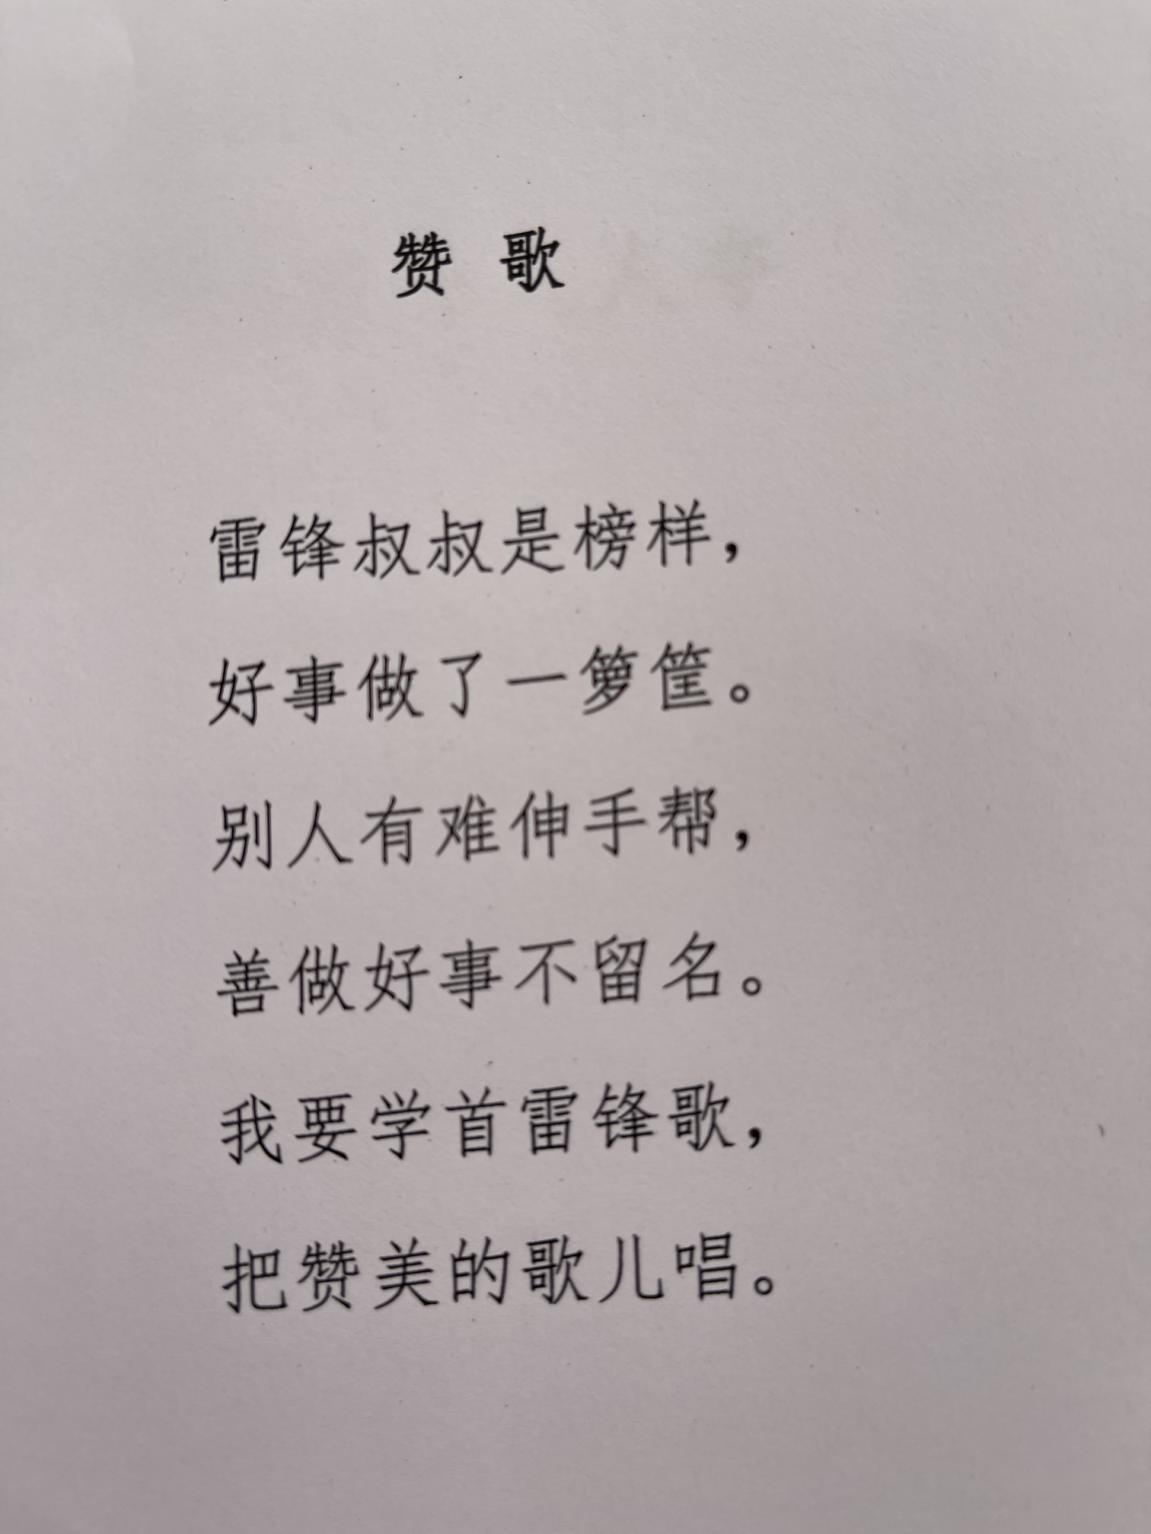 赞 歌
雷锋叔叔是榜样，
好事做了一箩筐。
别人有难伸手帮，
善做好事不留名。
我要学首雷锋歌，
把赞美的歌儿唱。